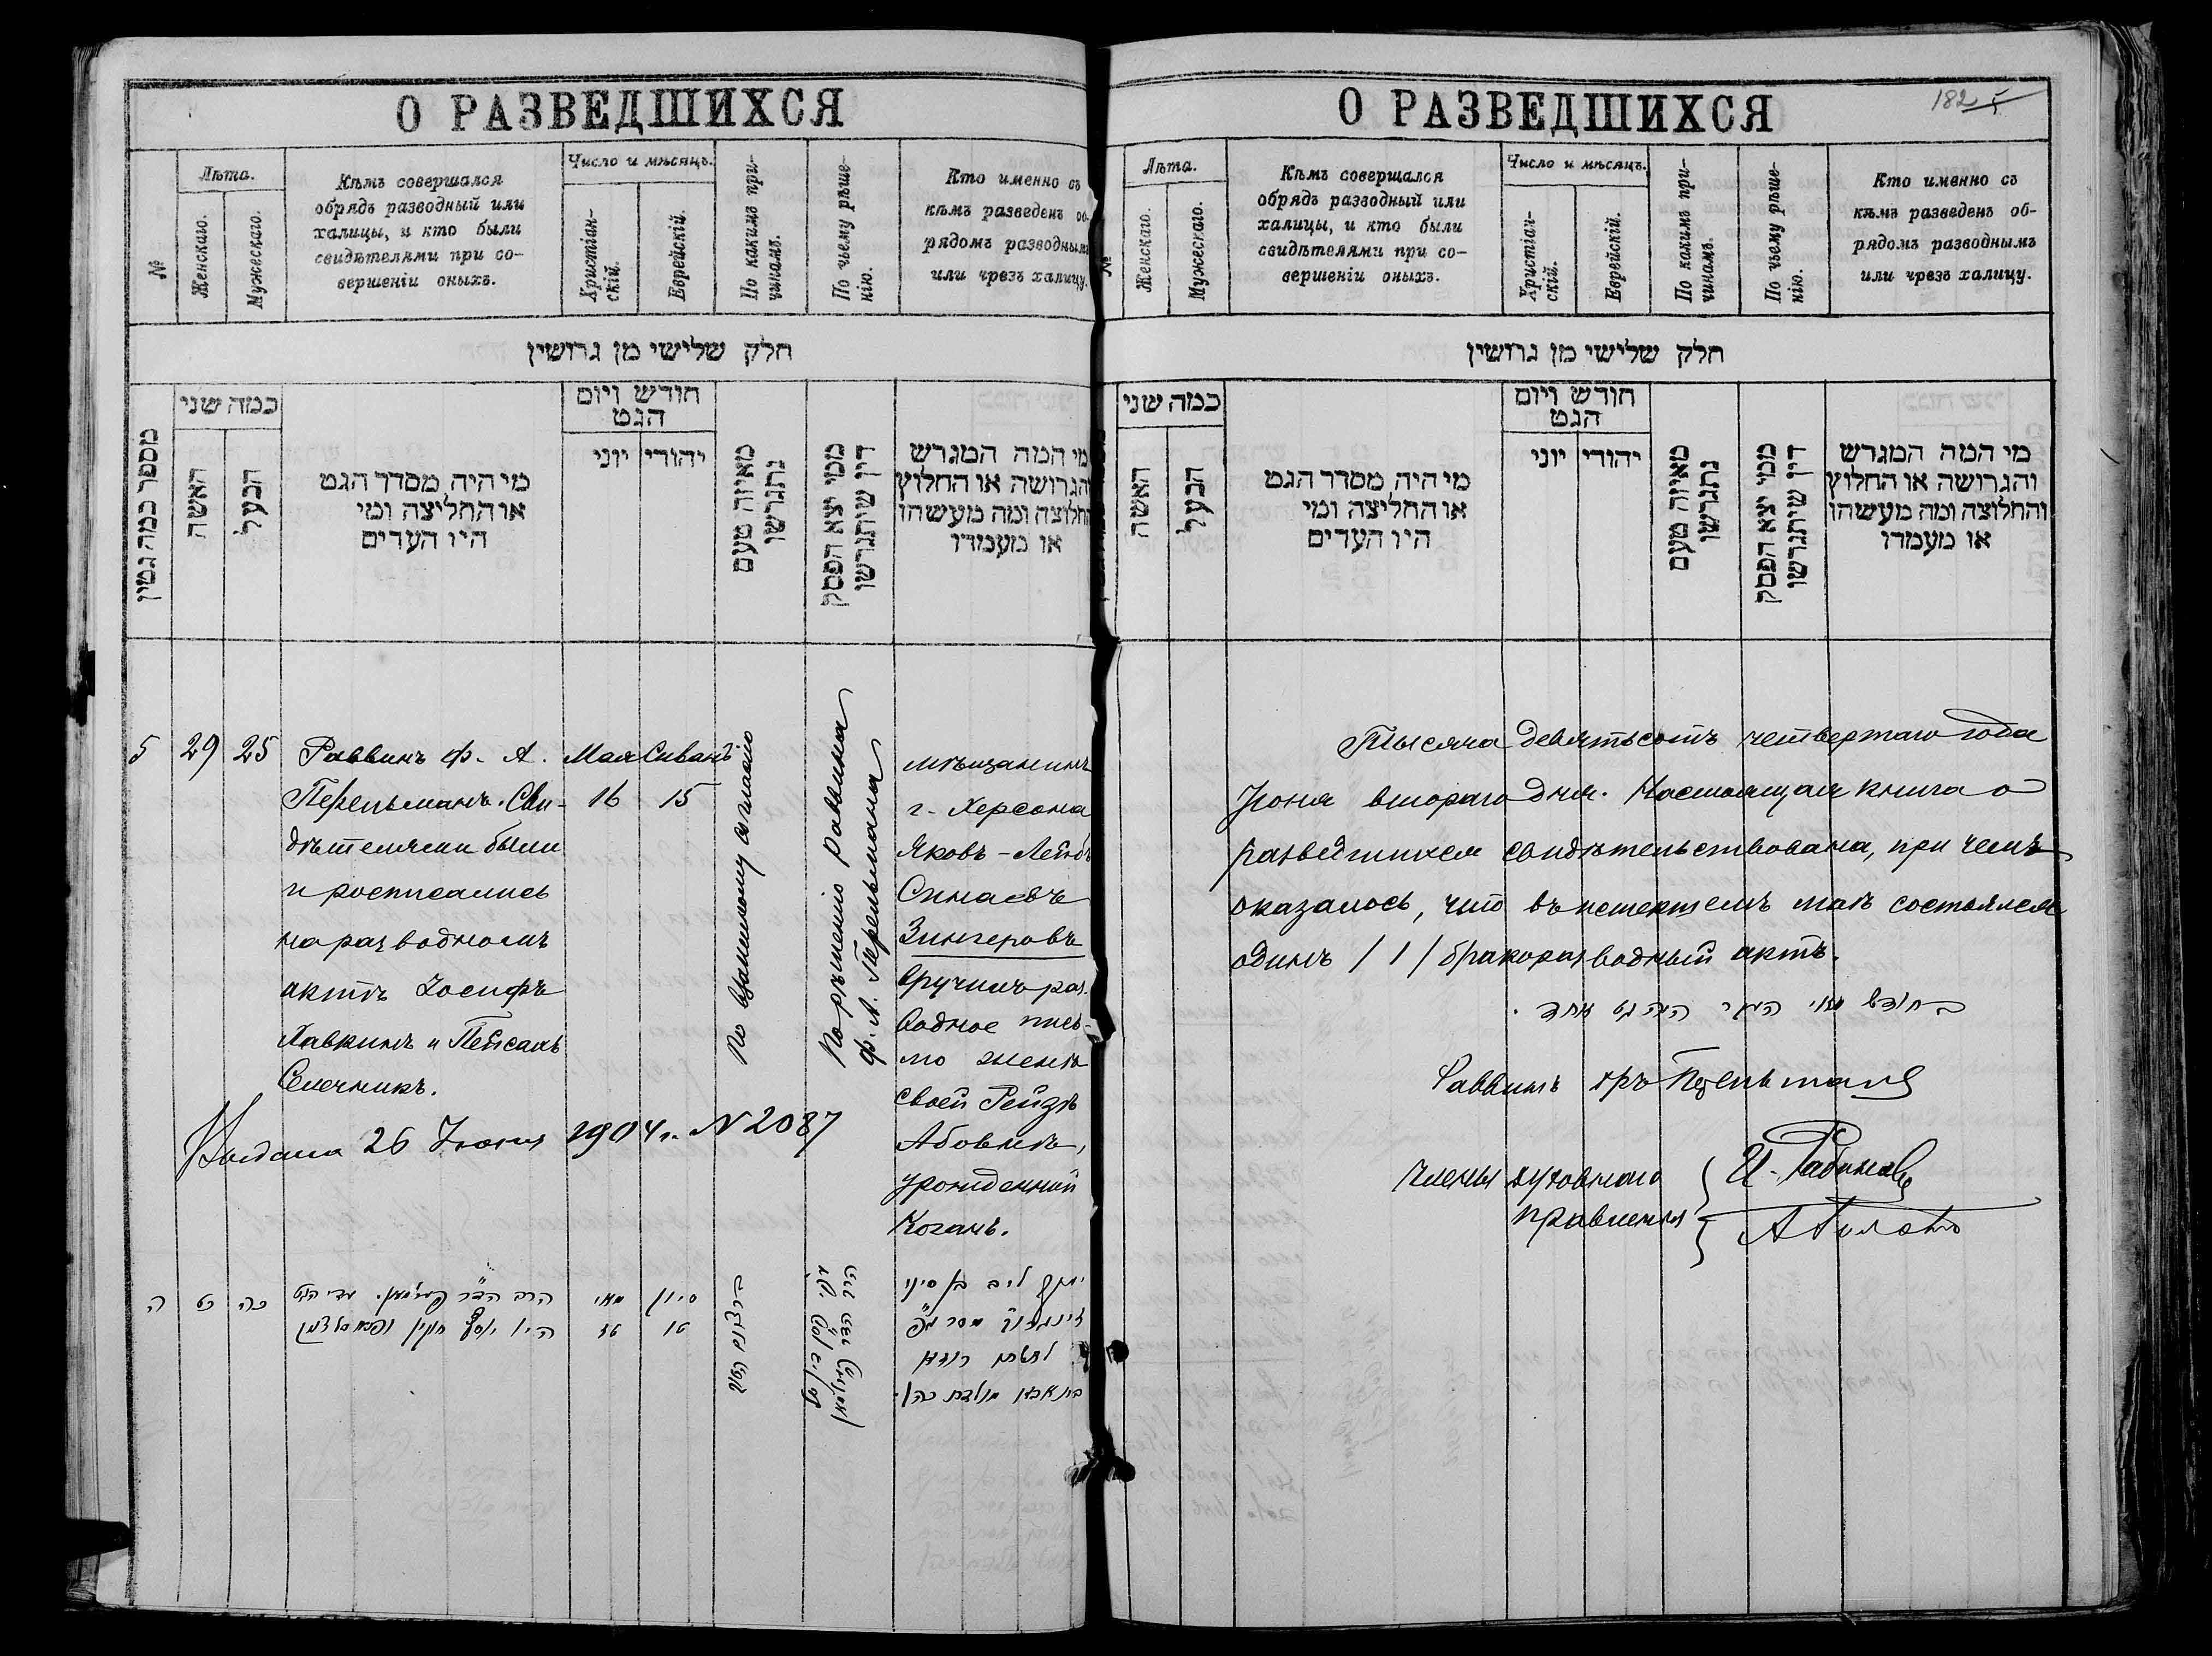 О РАЗВЕДШИХСЯ
№
Лѣта.
Женскаго.
Мужескаго.
Кѣмъ совершался
обрядъ разводный или
халицы, и кто были
свидѣтелями при со-
вершеніи оныхъ.
Число и мѣсяцъ.
Христіан-
скій.
Еврейскій.
По какимъ при-
чинамъ.
По чьему рѣше-
нію.
Кто именно съ
кѣмъ разведенъ об-
рядомъ разводнымъ
или чрезъ халицу.
חלק שלישי מן גרושין
מספר כמה גטין
כמה שני
האשה
הבעל
מי היה מסדר הגט
או החליצה ומי
היו העדים
חודש ויום
הגט
יהודי יוני
מאיזה טעם
נתגרשו
ממי יצא הפסק
דין שיתגרשו
מי המה המגרש
והגרושה או החלוץ
והחלוצה ומה מעשהו
או מעמדו
5
29
25
Раввинъ Ф. А.
Перельманъ. Сви-
дѣтелями были
и росписались
на разводномъ
актѣ Іосифъ
Лавкинъ и Пейсахъ
Сеемникъ.
Мая
16
Сиванъ
15
По взаимному согласію
По рѣшенію раввина
Ф. А. Перельмана
мѣщанинъ
г. Херсона
Яковъ-Лейбъ
Синаевъ
Зингеровъ
вручилъ раз-
водное пись-
мо женѣ
своей Рейзѣ
Абовнѣ,
урожденной
Коганъ.
Выдана 26 Іюня 1904 г. N 2087
ה
כט
כה
מאי
טז
סיון
טו
יעקב ליב בן סיני
בת אבא מולדת כהן.
О РАЗВЕДШИХСЯ
182
№
Лѣта.
Женскаго.
Мужескаго.
Кѣмъ совершался
обрядъ разводный или
халицы, и кто были
свидѣтелями при со-
вершеніи оныхъ.
Число и мѣсяцъ.
Христіан-
скій.
Еврейскій.
По какимъ при-
чинамъ.
По чьему рѣше-
нію.
Кто именно съ
кѣмъ разведенъ об-
рядомъ разводнымъ
или чрезъ халицу.
חלק שלישי מן גרושין
כמה שני
האשה
הבעל
מי היה מסדר הגט
או החליצה ומי
היו העדים
חודש ויום
הגט
יהודי יוני
מאיזה טעם
נתגרשו
ממי יצא הפסק
דין שיתגרשו
מי המה המגרש
והגרושה או החלוץ
והחלוצה ומה מעשהו
או מעמדו
Тысяча девятьсотъ четвертаго года
Іюня второго дня. Настоящая книга о
разведшихся свидѣтельствована, при чемъ
оказалось, что въ истекшемъ маѣ состоялся
одинъ /1/ бракоразводный актъ.
בחודש מאי היה גט אחד.
Раввинъ Перельманъ
Члены духовнаго
правленія